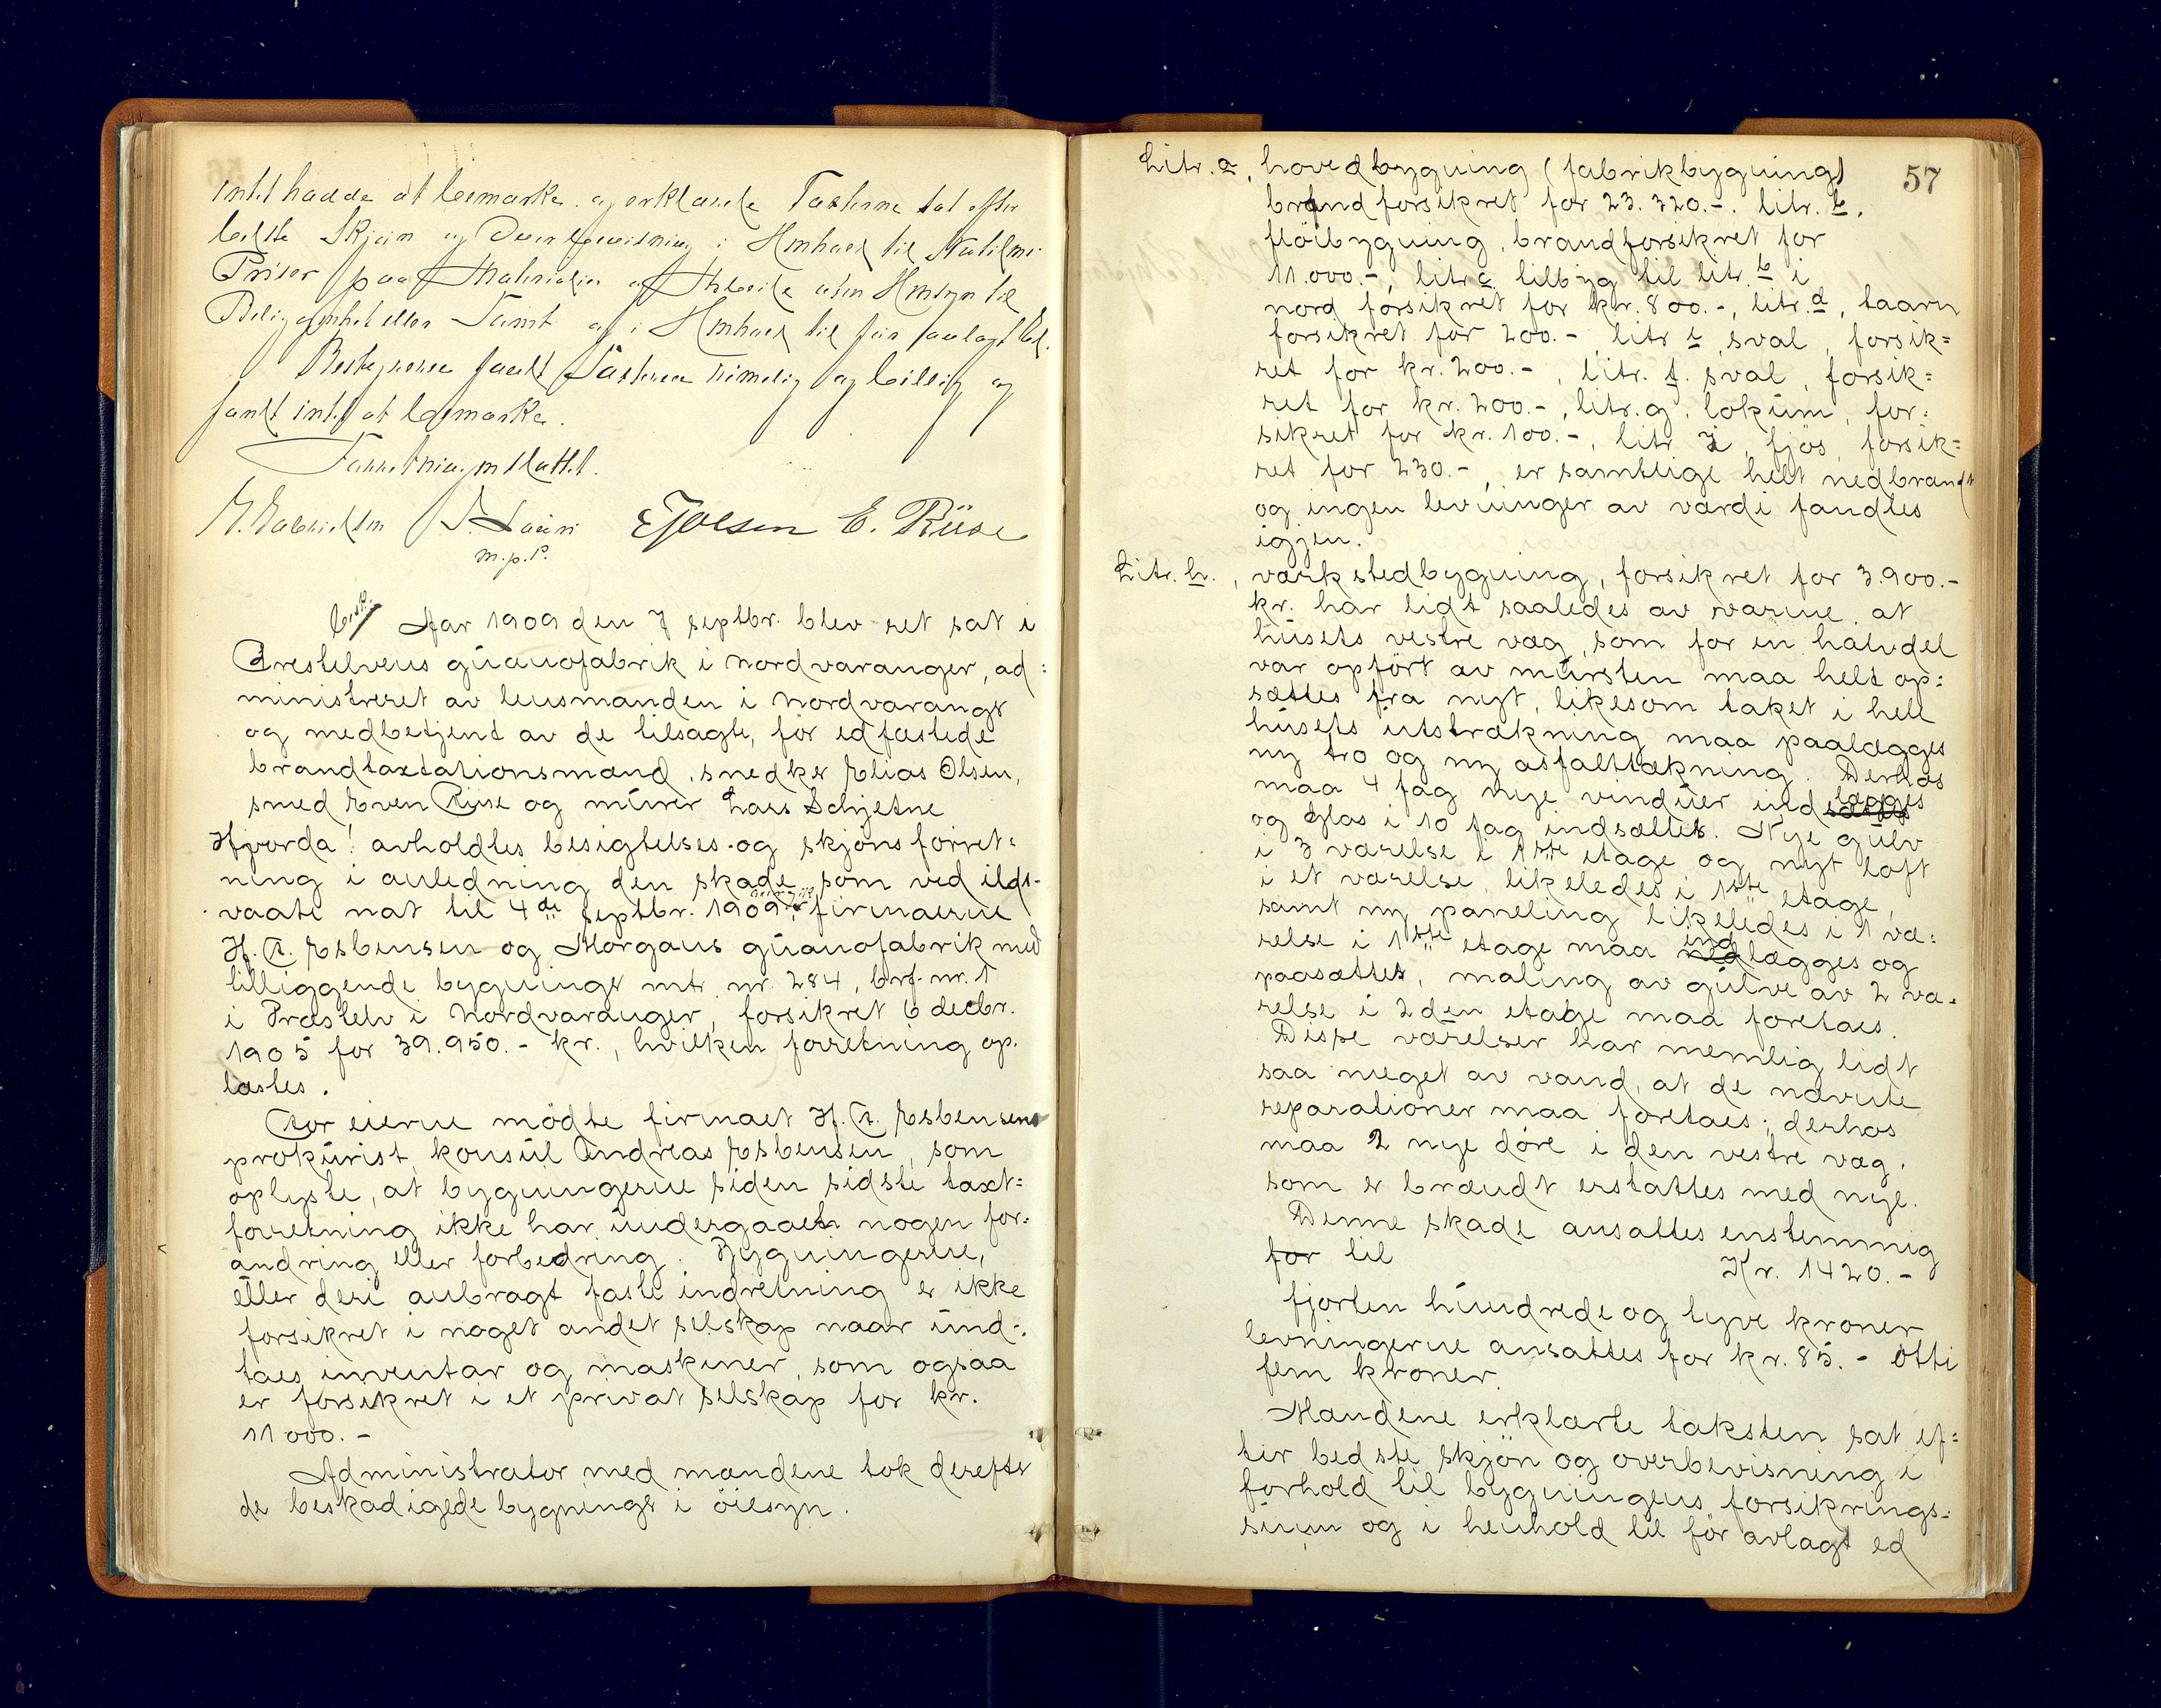 intet hadde at bemærke og erklærede Taxterne sat efter
bedste Skjøn og Overbevisning i Henhold til Stedets
Priser paa Materialier og Arbeide uten Hensyn til
Beliggenhet eller Tomt og i Henhold til før avlagt Ed.
Bestyreren fandt Taxterne rimelig og billig og
fandt intet at bemærke.
Forretningen sluttet.
E Jolsen E. Riise
m.p.P.
besk. Aar 1909 den 7 septbr. blev ret sat i
Præstelvens guanofabrik i Nordvaranger, ad=
ministreret av lensmanden i Nordvaranger
og medbetjent av de tilsagte, før edfæstede
brandtaxtationsmænd, snedker Elias Olsen,
smed Even Riise og murer Lars Schjetne
Hvorda! avholdtes besigtelses- og skjønsforret=
ning i anledning den skade som ved ilds-
vaate nat til 4de septbr. 1909 firmaerne
H. A. Esbensen og Morgans guanofabrik med
tilliggende bygninger mtr. nr. 284, brf. nr. 1
i Præstelv i Nordvaranger, forsikret 6 decbr.
1905 for 39.950.- kr., hvilken forretning op-
læstes.
For eierne mødte firmaet H. A. Esbensens
prokurist, konsul Andreas Esbensen, som
oplyste, at bygningerne siden sidste taxt=
forretning ikke har undergaaet nogen for-
andring eller forbedring. Bygningerne,
eller deri anbragt faste indretning er ikke
forsikret i noget andet selskap naar und-
taes inventar og maskiner, som ogsaa
er forsikret i et privat selskap for kr.
11000.-
Administrator med mændene tok derefter
de beskadigede bygninger i öiesyn.
57
Litr. a, hovedbygning (fabrikbygning)
brandforsikret for 23.320.-. litr. b.
flöibygning, brandforsikret for
11.000.-, litr. c tilbyg til litr. b i
nord forsikret for kr. 800.-, litr. d, taarn
forsikret for 200.-, litr e, sval, forsik=
ret for kr. 200.-, litr. f. sval, forsik=
ret for kr. 200.-, litr. g, lokum, for=
sikret for kr. 100.-, litr i, fjös, forsik=
ret for 230.-, er samtlige helt nedbrandt
og ingen levninger av værdi fandtes
igjen.
Litr. h., værkstedbygning, forsikret for 3.900.-
kr. har lidt saaledes av varme, at
husets vestre væg, som for en halvdel
var opført av mursten maa helt op=
sættes fra nyt, likesom taket i hele
husets utstrækning maa paalægges
ny tro og ny asfalttækning. Derhos
maa 4 fag nye vinduer indsættes lægges
og Glas i 10 fag indsættes. Nye gulv
i 3 værelse i 1ste etage og nyt loft
i et værelse, likeledes i 1ste etage,
samt ny paneling likeledes i 1 væ=
relse i 1ste etage maa ned indlægges og
paasættes, maling av gulve av 2 væ=
relse i 2den etage maa foretaes.
Disse værelser har nemlig lidt
saa meget av vand, at de nævnte
reparationer maa foretaes; derhos
maa 2 nye döre i den vestre væg,
som er brændt erstattes med nye.
Denne skade ansattes enstemmig
for til Kr. 1420.-
fjorten hundrede og tyve kroner
levningerne ansattes for kr. 85.- otti
fem kroner.
Mændene erklærte taksten sat ef=
ter bedste skjön og overbevisning i
forhold til bygningens forsikrings=
sum og i henhold til för avlagt ed